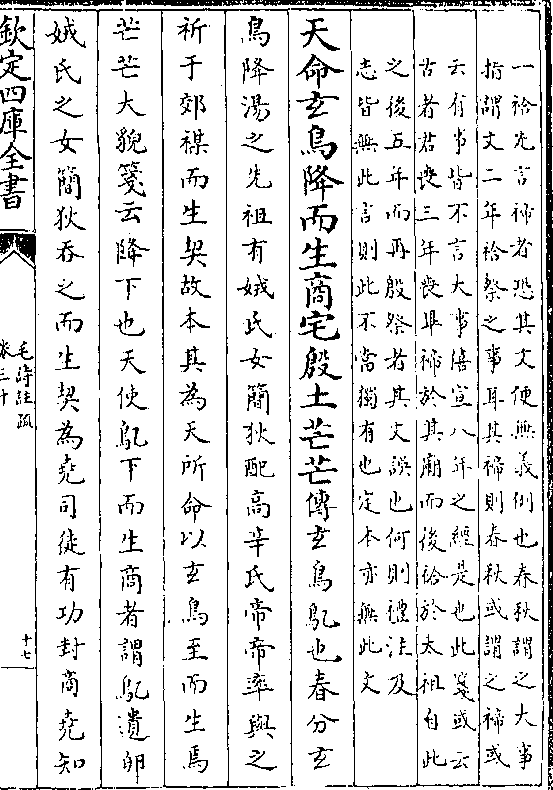 一祫先言禘者恐其文便無義例也春秋謂之大事
指謂文二年祫祭之事耳其禘則春秋或謂之禘或
云有事皆不言大事僖宣八年之經是也此箋或云
古者君喪三年喪畢禘於其廟而後祫於太祖自此
之後五年而再殷祭者其文誤也何則禮注及
志皆無此言則此不當獨有也定本亦無此文
天命玄鳥降而生商宅殷土芒芒傳玄鳥鳦也春分玄
鳥降湯之先祖有娀氏女簡狄配高辛氏帝帝率與之
祈于郊禖而生契故本其為天所命以玄鳥至而生焉
芒芒大貌箋云降下也天使鳦下而生商者謂鳦遺卵
娀氏之女簡狄吞之而生契為堯司徒有功封商堯知
欽定四庫全書
毛詩註疏
卷三十
十七